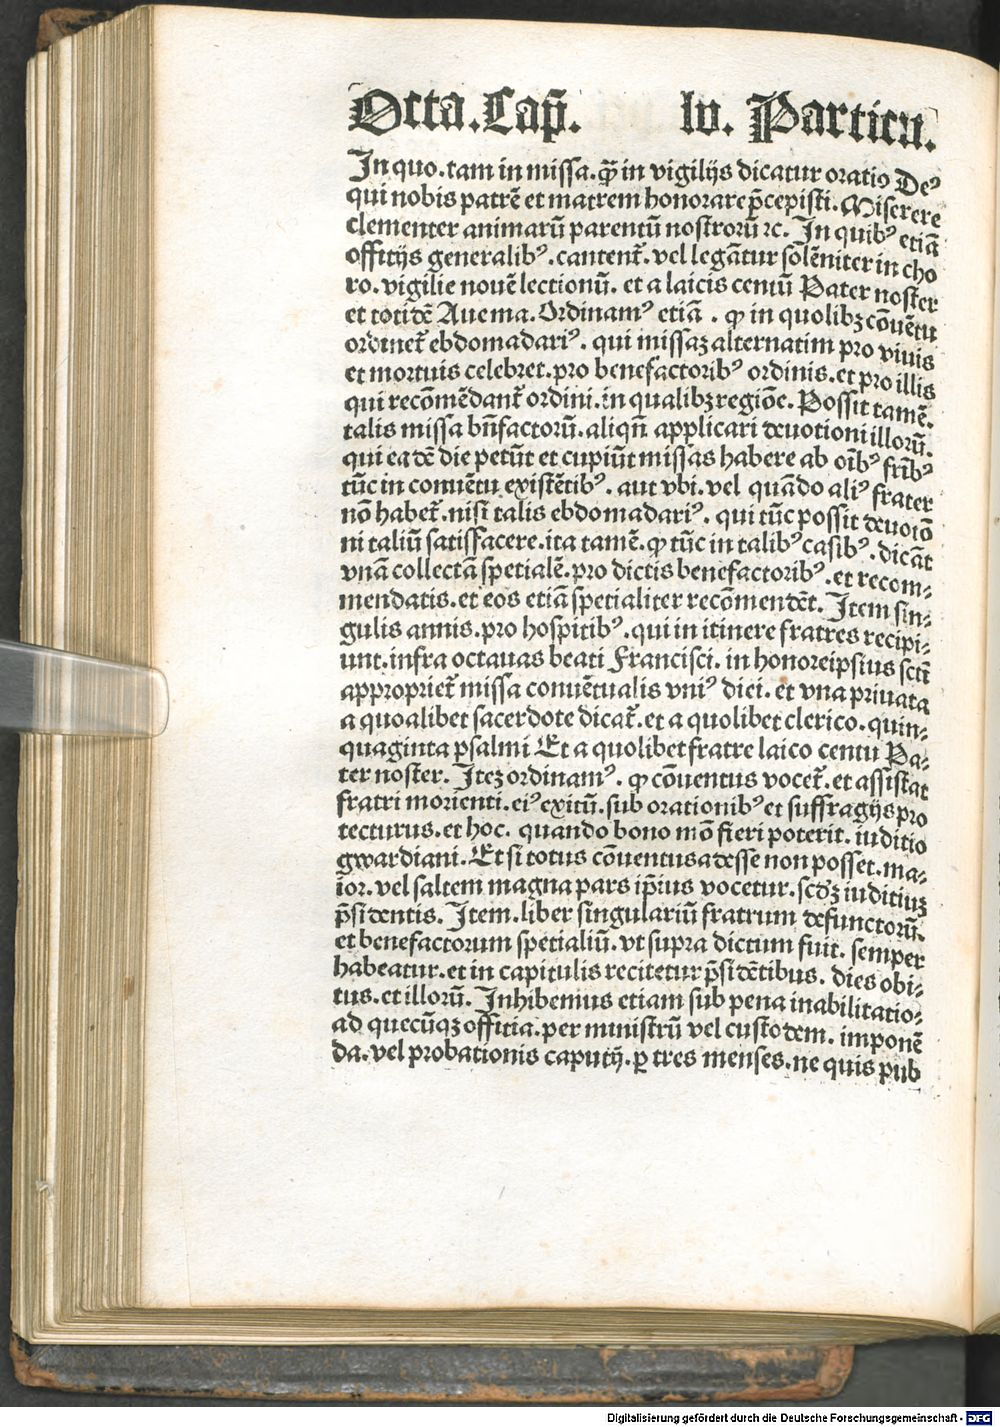 Octa. Cap̄. lv. Particu.
In quo. tam in missa. qͣ̄ in vigilijs dicatur oratio Deꝰ
qui nobis patrē et matrem honorare p̄cepisti. Miserere
clementer animarū parentū nostrorū ⁊c. In quibꝰ etiā
offitijs generalibꝰ. cantent᷑. vel legātur solēniter in cho
ro. vigilie nouē lectionū. et a laicis centū Pater noster
et totidē Aue ma. Ordinamꝰ etiā. ꝙ in quolibꝫ cōuētu
ordinet᷑ ebdomadariꝰ. qui missaꝫ alternatim pro viuis
et mortuis celebret. pro benefactoribꝰ ordinis. et pro illis
qui recōmēdant᷑ ordini. in qualibꝫ regiōe. Possit tamē.
talis missa bn̄factorū. aliqn̄ applicari deuotioni illorū.
qui eadē die petūt et cupiūt missas habere ab oībꝰ frībꝰ
tūc in conuētu existētibꝰ. aut vbi. vel quādo aliꝰ frater
nō habet᷑. nisi talis ebdomadariꝰ. qui tūc possit deuoiō
ni taliū satisfacere. ita tamē. ꝙ tūc in talibꝰ casibꝰ. dicāt
vnā collectā spetialē. pro dictis benefactoribꝰ. et recom⸗
mendatis. et eos etiā spetialiter recōmendēt. Item sin⸗
gulis annis. pro hospitibꝰ. qui in itinere fratres recipi⸗
unt. infra octauas beati Francisci. in honore ipsius sctī
approprięt᷑ missa conuētualis vniꝰ diei. et vna priuata
a quoalibet sacerdote dicat᷑. et a quolibet clerico. quin⸗
quaginta psalmi Et a quolibet fratre laico centu Pa⸗
ter noster. Iteꝫ ordinamꝰ. ꝙ cōuentus vocet᷑. et assistat
fratri morienti. eiꝰ exitū. sub orationibꝰ et suffragijs pro
tecturus. et hoc. quando bono mō fieri poterit. iuditio
gwardiani. Et si totus cōuentus adesse non posset. ma⸗
ior. vel saltem magna pars ip̄ius vocetur. scd'ꝫ iuditiuꝫ
p̄sidentis. Item. liber singulariū fratrum defunctorū.
et benefactorum spetialiū. vt supra dictum fuit. semper
habeatur. et in capitulis recitetur p̄sidētibus. dies obi⸗
tus. et illorū. Inhibemus etiam sub pena inabilitatio⸗
ad quecūqꝫ offitia. per ministrū vel custodem. imponē
da. vel probationis caputij. ꝑ tres menses. ne quis pub
Digitalisierung gefördert durch die Deutsche Forschungsgemeinschaft - DFG